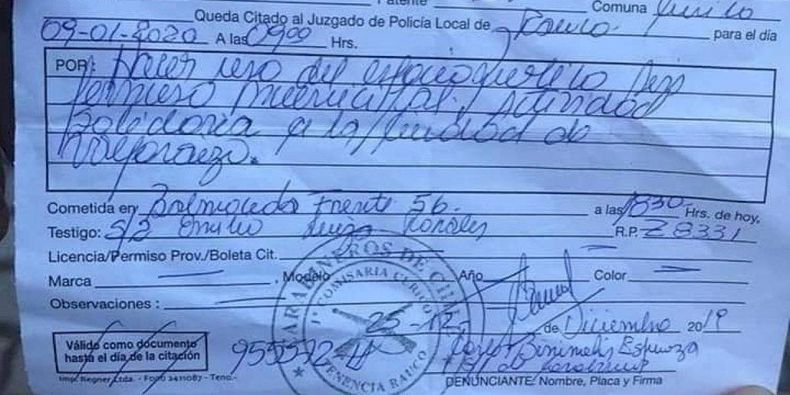 Patente Comuna Curicó
Queda Citado al Juzgado de Policía Local de Rauco para el día
09-01-2020 A las 09:00 Hrs.
POR: Hacer uso del espacio público sin
permiso municipal, Actividad
Solidaria a la ciudad de
Valparaizo.
Cometida en Balmaceda Frente 56. a las 1830 Hrs. de hoy,
Testigo: S/2 Emilio R.P. Z 8331
Licencia/Permiso Prov./Boleta Cit.
Marca Modelo Año Color
Observaciones :
CARABINEROS DE CHILE
1ª COMISARIA CURICO
TENENCIA RAUCO
25-12 de Diciembre 2019
Válido como documento
hasta el día de la citación
Imp. Regner Ltda. - Fono 2411087 - Teno.-
Espinoza
DENUNCIANTE: Nombre, Placa y Firma